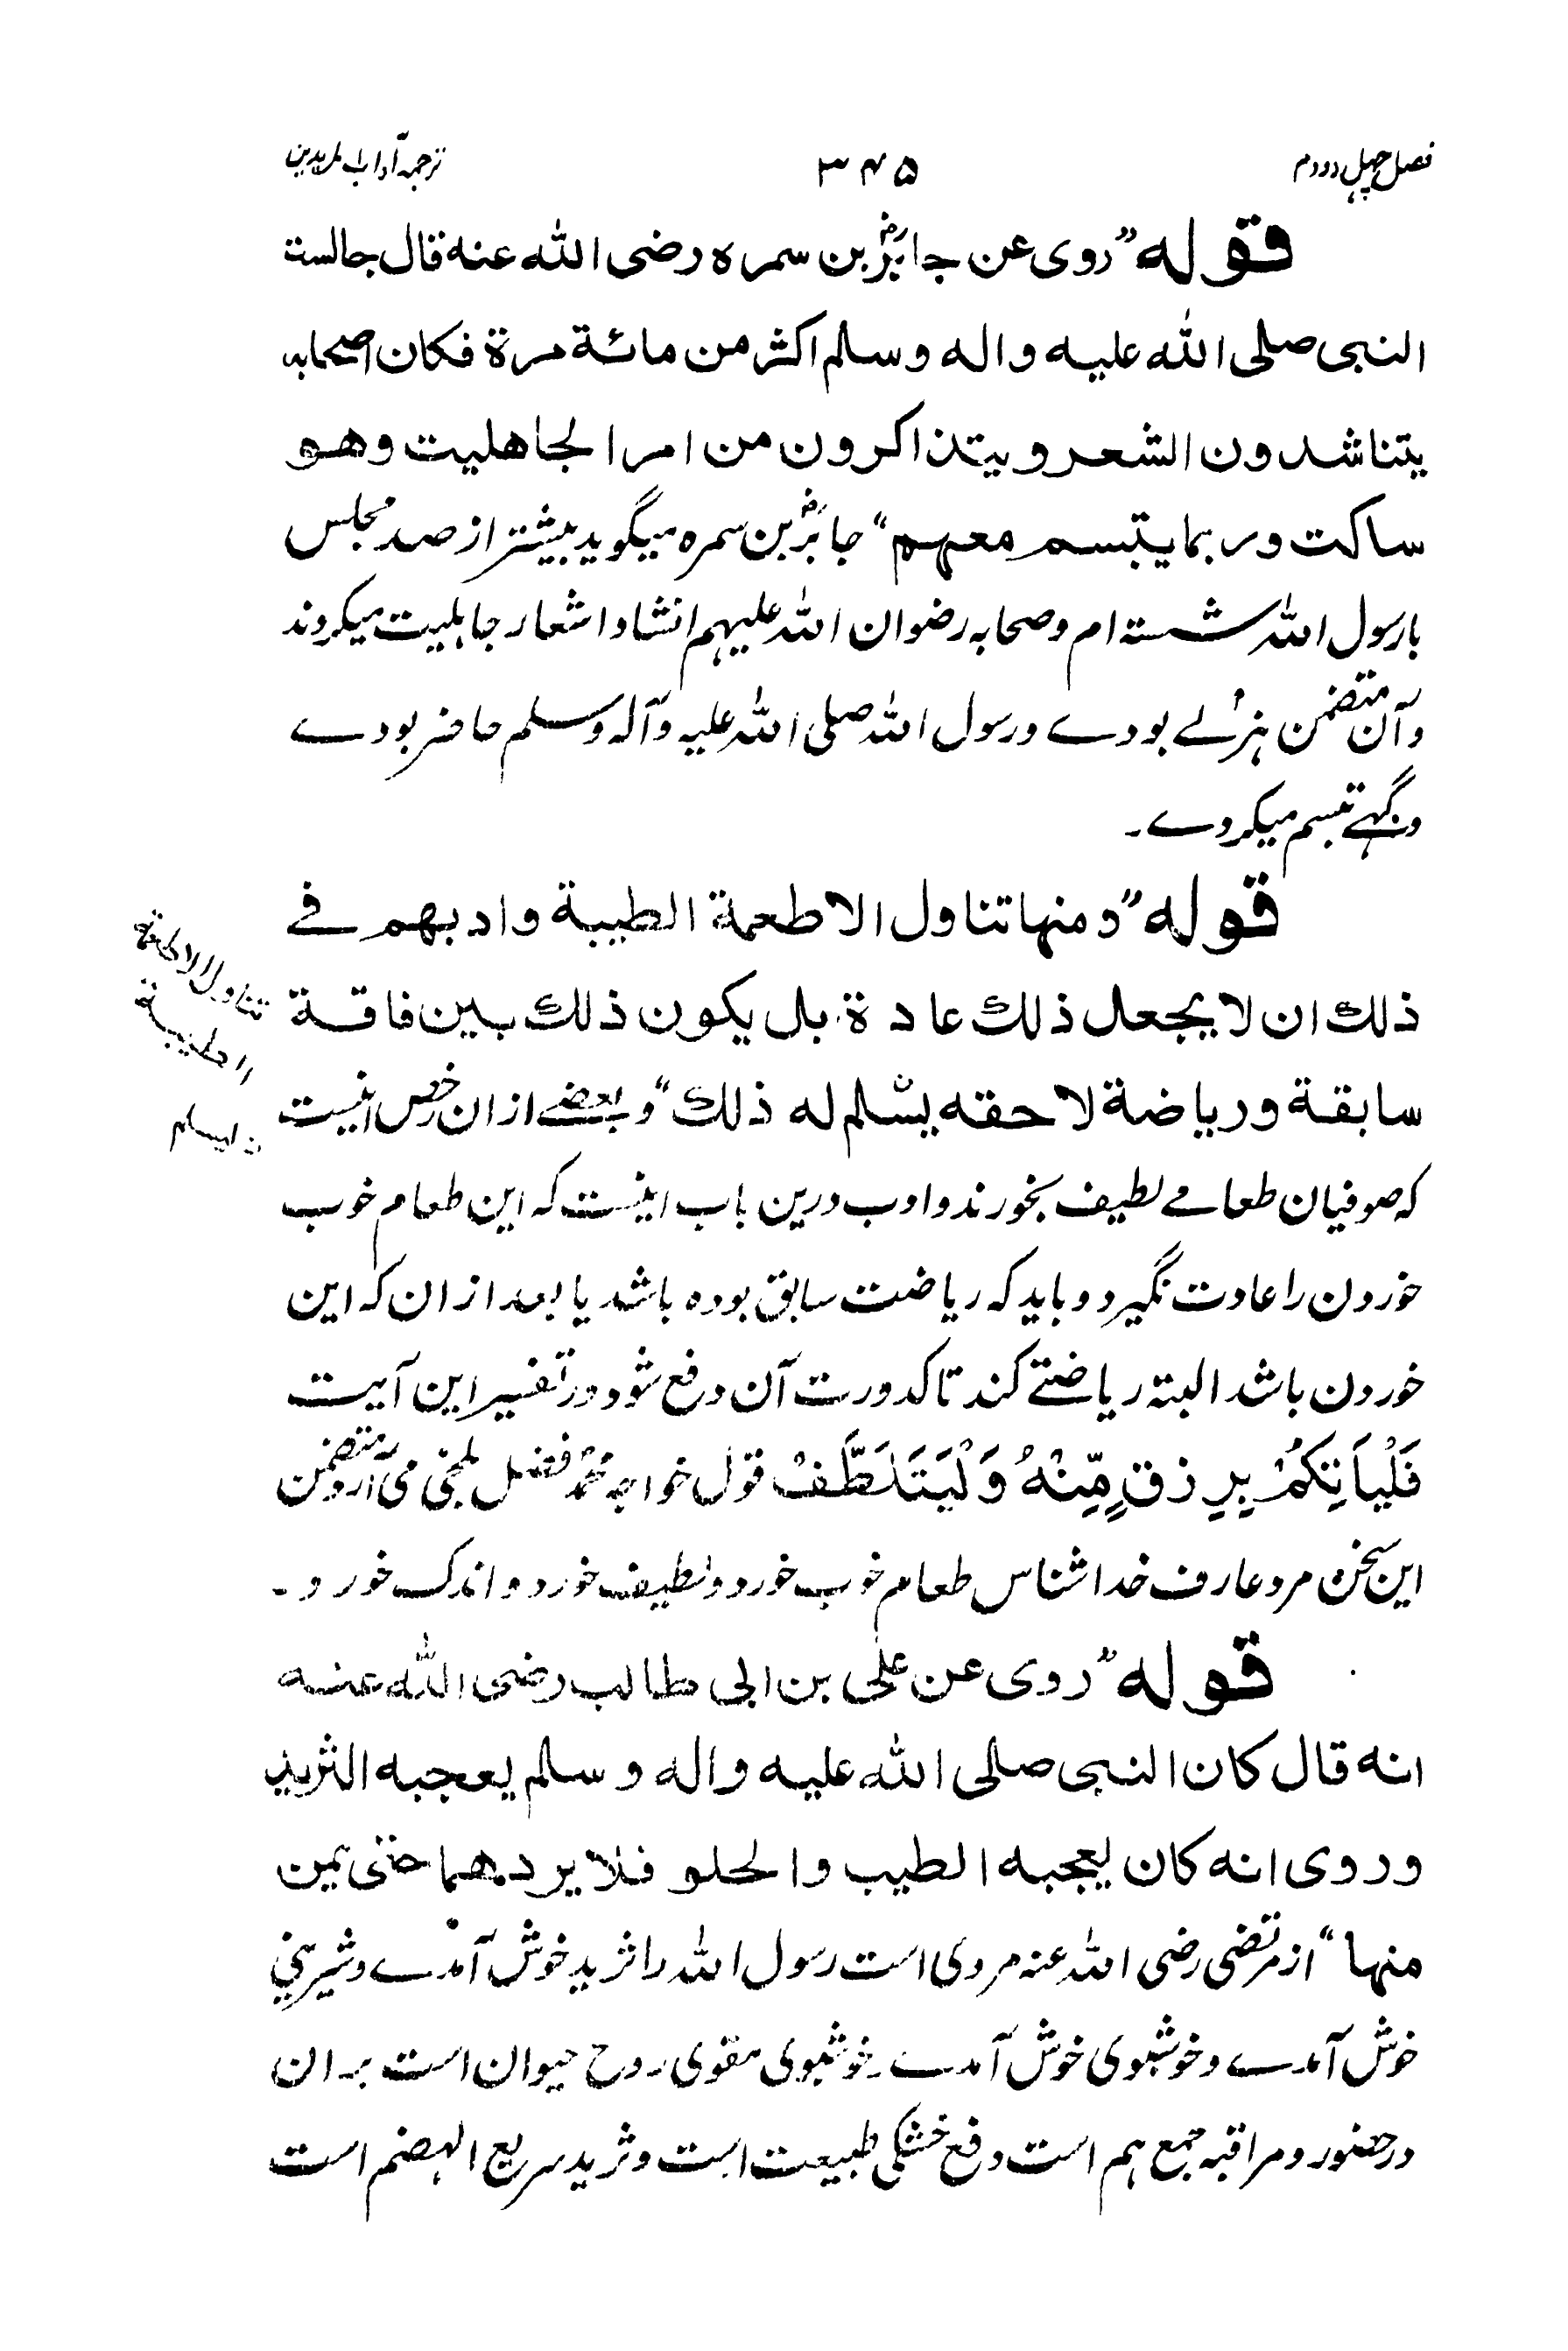 فصل چهل و دوم
۳۴۵
ترجمہ آداب المریدین
قوله "روى عن جابرؓ بن سمره رضى الله عنه قال جالست
النبى صلى الله عليه واله وسلم اكثر من مائة مرة فكان اصحابه
يتناشدون الشعر ويتذاكرون من امر الجاهليت وهو
ساكت وربما يتبسم معهم" جابرؓ بن سمره میگوید بیشتر از صد مجلس
با رسول الله نشسته ام و صحابه رضوان الله علیهم انشاد اشعار جاہلیت میکردند
و آن متضمن ہزلے بودے و رسول الله صلی الله علیہ و آلہ وسلم حاضر بودے
و گہے تبسم میکردے۔
قوله "ومنها تناول الاطعمة الطيبة وادبهم فے
ذلك ان لا يجعل ذلك عادة بل يكون ذلك بين فاقة
سابقة ورياضة لاحقه يسلم له ذلك" و بعضے از ان رخص اینست
کہ صوفیان طعامے لطیف بخورند و ادب درین باب اینست کہ این طعام خوب
خوردن را عادت نگیرد و باید کہ ریاضت سابق بوده باشد یا بعد از ان کہ این
خوردن باشد البتہ ریاضتے کند تا کدورت آن دفع شود و در تفسیر این آیت
فَلْيَأْتِكُمْ بِرِزْقٍ مِّنْهُ وَلْيَتَلَطَّفْ قول خواجہ محمد فضل بلخی می آرد متضمن
این سخن مرد عارف خدا شناس طعام خوب خورد و لطیف خورد و اندک خورد۔
قوله "روى عن على بن ابى طالب رضى الله عنه
انه قال كان النبى صلى الله عليه واله وسلم يعجبه الثريد
وروى انه كان يعجبه الطيب والحلو فلا يردهما حتى يمن
منها" از مرتضی رضی الله عنہ مروی است رسول الله را ثرید خوش آمدے و شیرینی
خوش آمدے و خوشبوی خوش آمدے۔ خوشبوی مقوی روح حیوان است بدان
در حضور و مراقبہ جمع ہم است دفع خشکی طبیعت است و ثرید سریع الہضم است
تناول الاطعمة
الطيبة